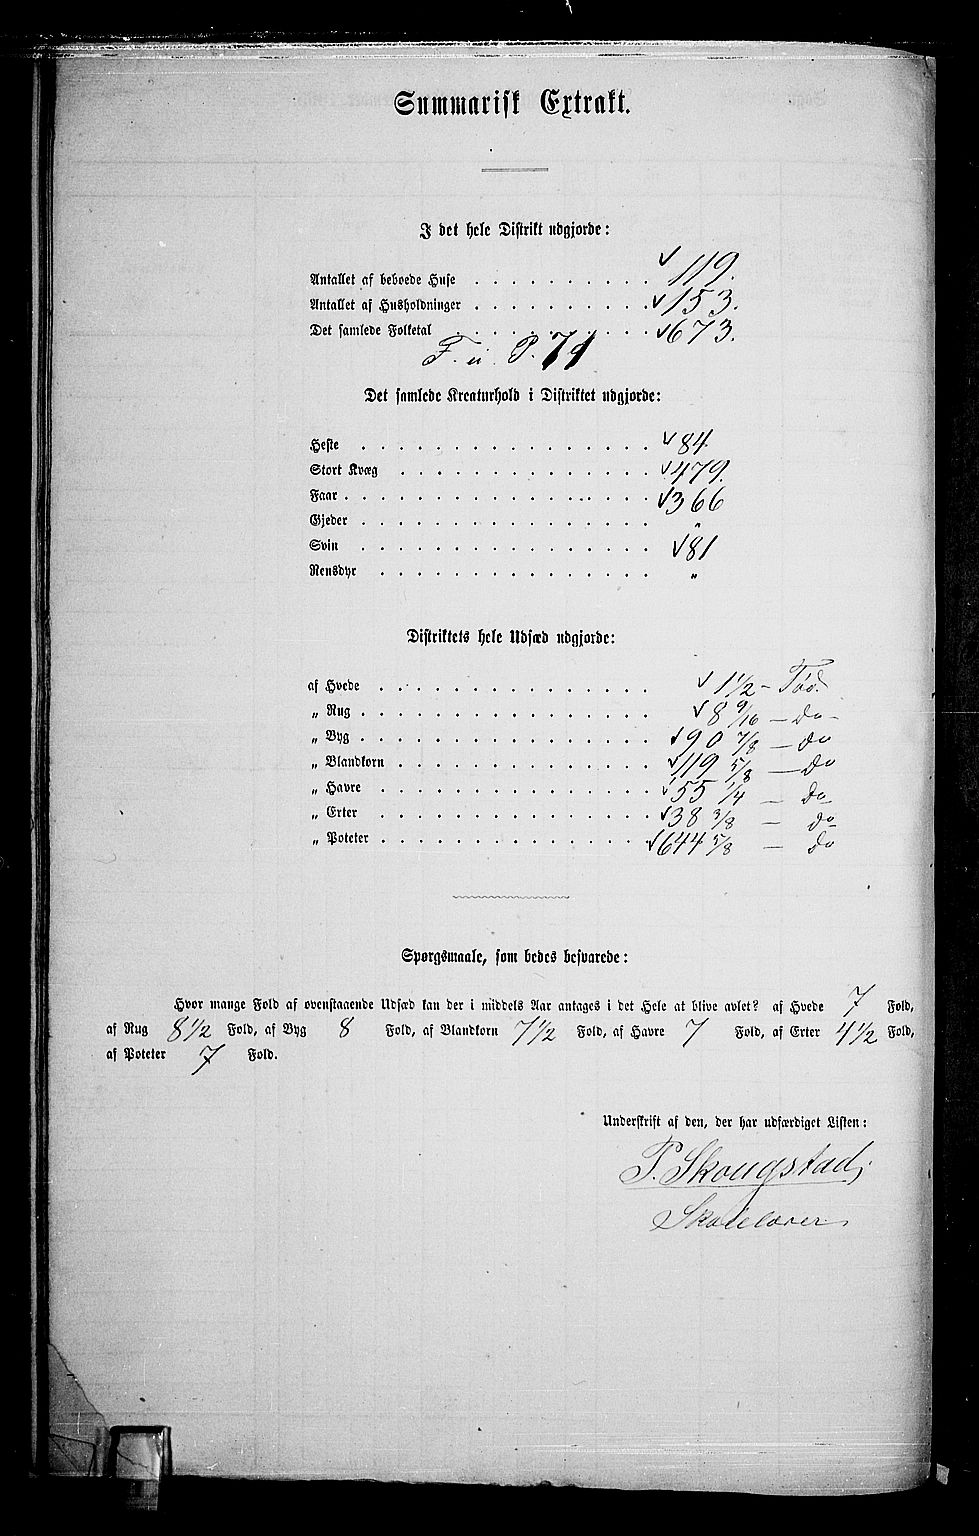 Summarisk Extrakt.
I det hele Distrikt udgjorde:
Antallet af beboede Huse . . . . . . . . . . √ 119.
Antallet af Husholdninger . . . . . . . . . . √ 153.
Det samlede Folketal . . . . . . . . . . √ 673.
F. u. P. 71
Det samlede Kreaturhold i Distriktet udgjorde:
Heste . . . . . . . . . . √ 84.
Stort Kvæg . . . . . . . . . . √ 479.
Faar . . . . . . . . . . √ 366
Gjeder . . . . . . . . . . "
Svin . . . . . . . . . . √ 81
Rensdyr . . . . . . . . . . "
Distriktets hele Udsæd udgjorde:
af Hvede . . . . . . . . . . √ 1 1/2 – Tød.
„ Rug . . . . . . . . . . √ 8 9/16 – do –
„ Byg . . . . . . . . . . √ 90 7/8 – do
„ Blandkorn . . . . . . . . . . √ 119 5/8 – do
„ Havre . . . . . . . . . . √ 55 1/4 – do
„ Erter . . . . . . . . . . √ 38 3/8 – do
„ Poteter . . . . . . . . . . √ 644 5/8 – do
Spørgsmaale, som bedes besvarede:
Hvor mange Fold af ovenstaaende Udsæd kan der i middels Aar antages i det Hele at blive avlet? af Hvede 7 Fold,
af Rug 8 1/2 Fold, af Byg 8 Fold, af Blandkorn 7 1/2 Fold, af Havre 7 Fold, af Erter 4 1/2 Fold,
af Poteter 7 Fold.
Underskrift af den, der har udfærdiget Listen:
P. Skougstad,
Skolelærer